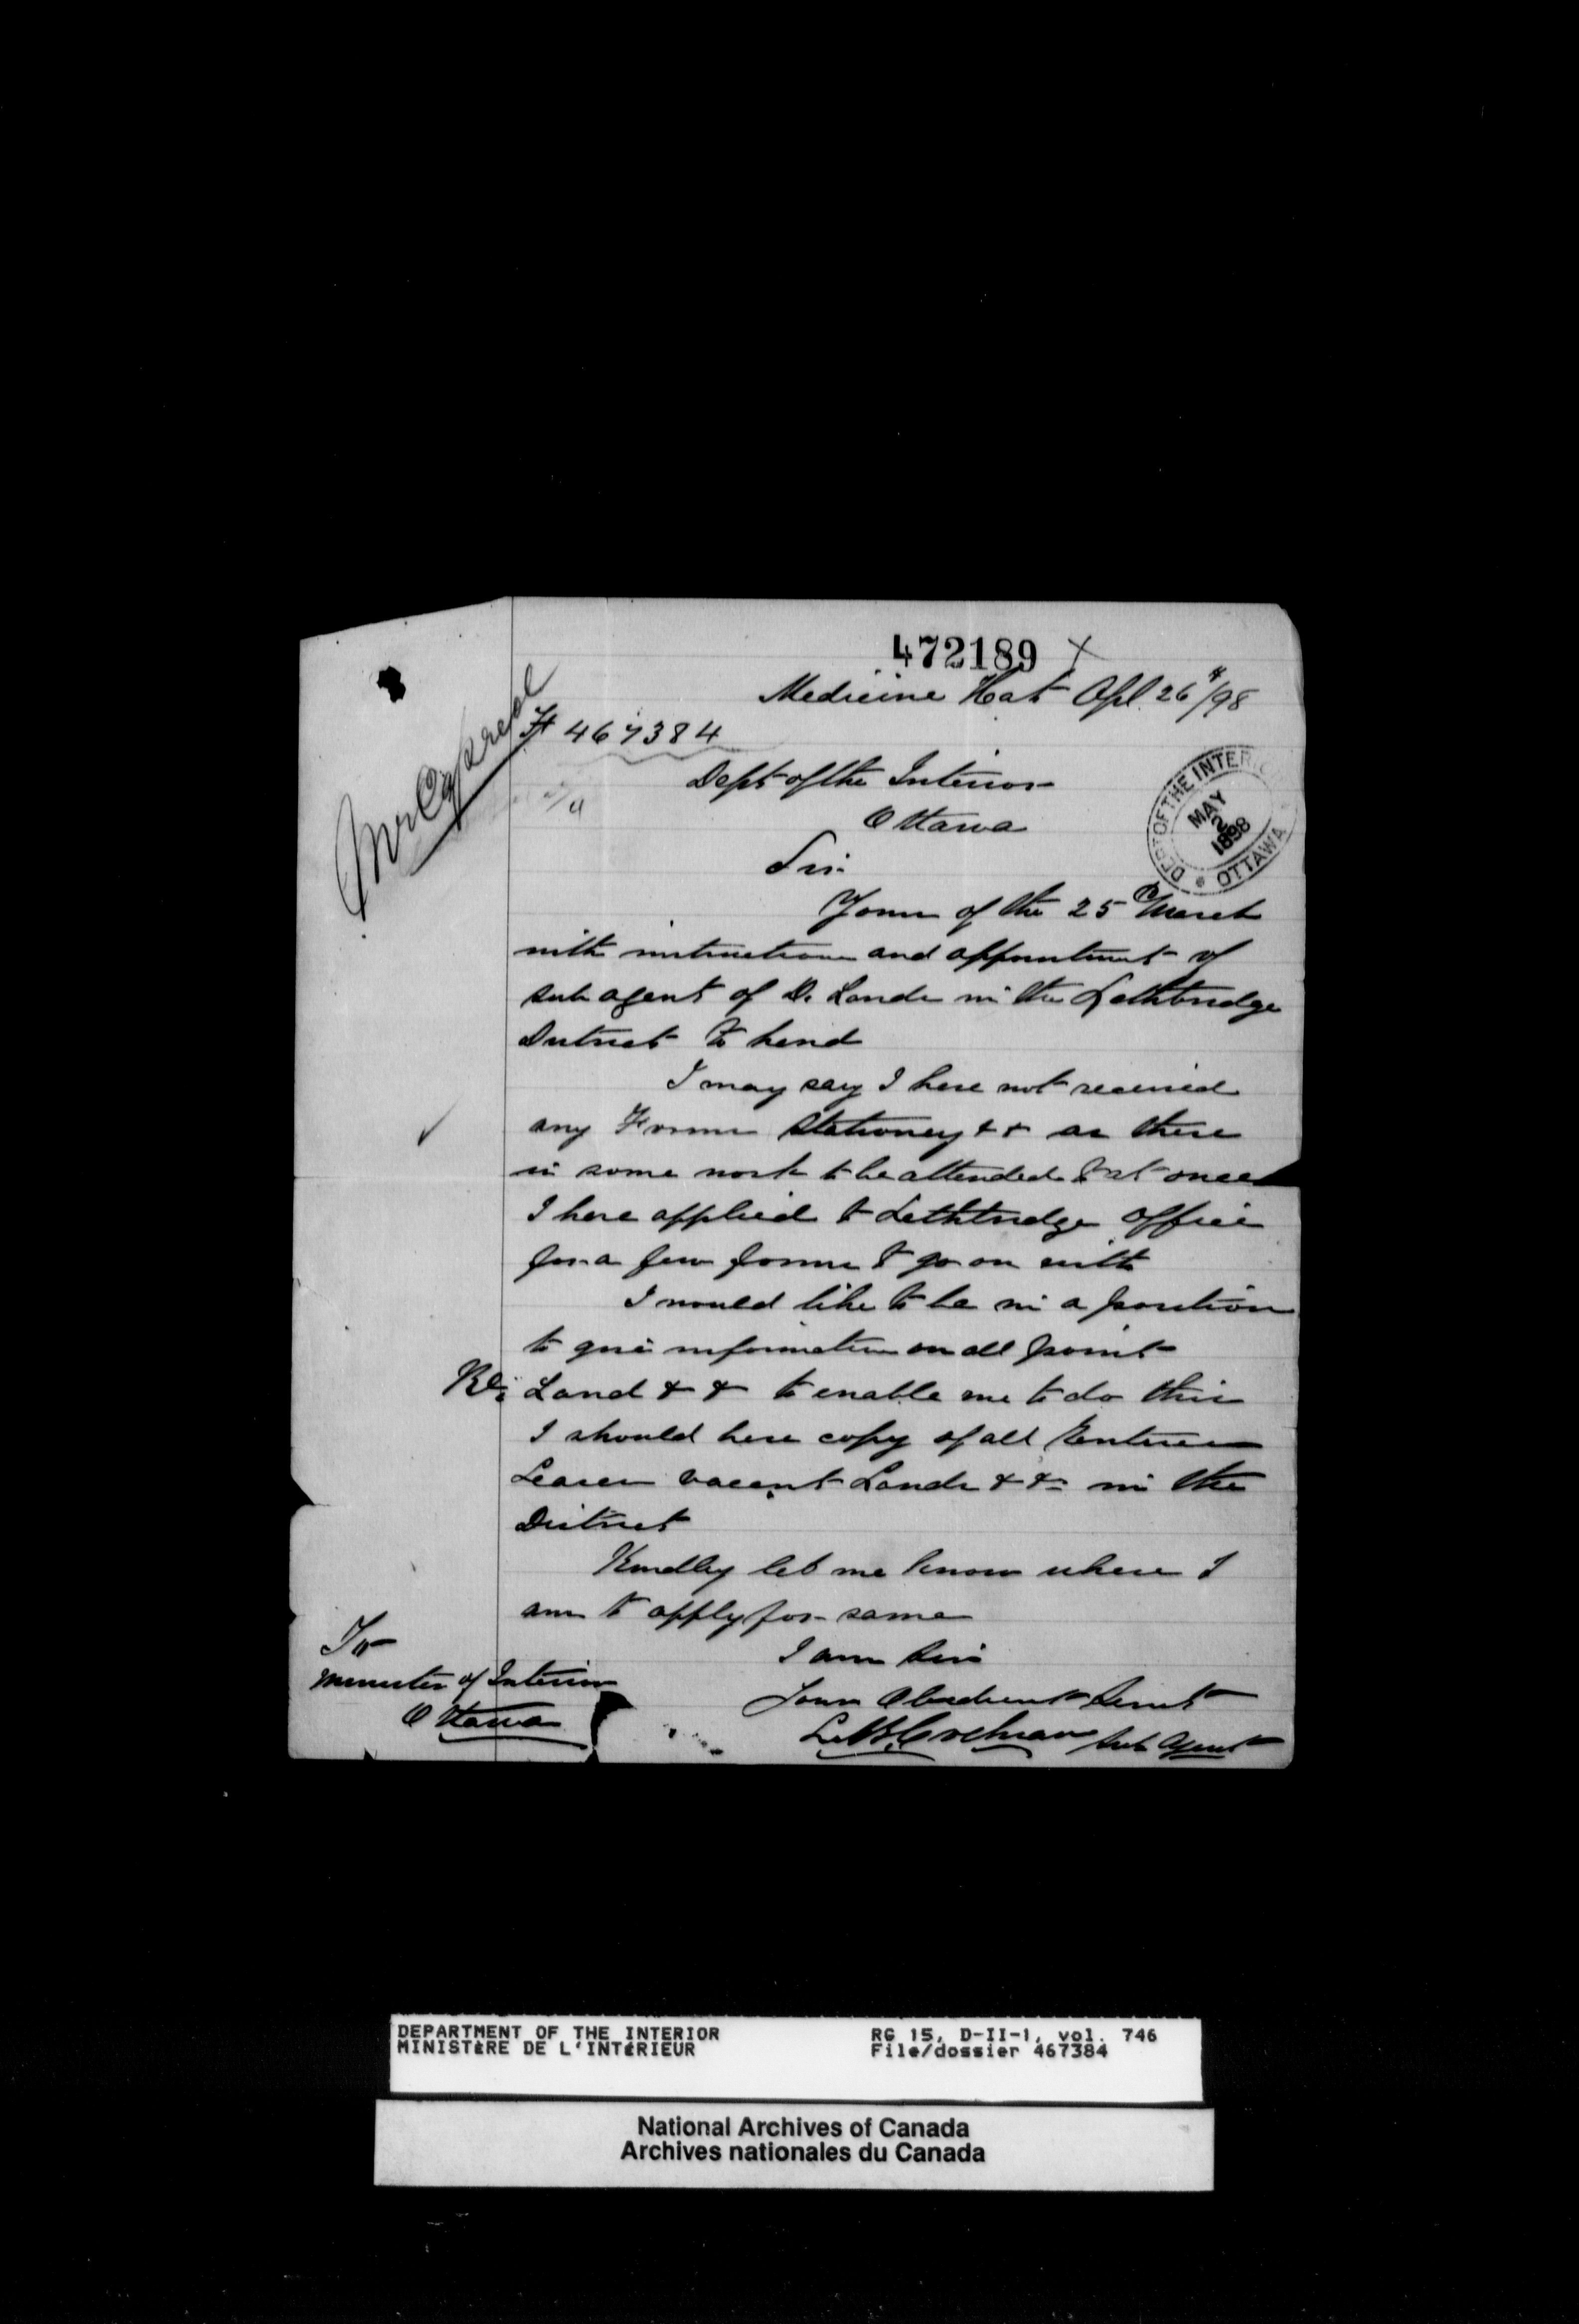 472189 X
Medicine Hat Apl. 26th/98
467384
Dept of the Interior
Ottawa
DEPT OF THE INTERIOR
MAY
2
1898
OTTAWA
Sir
Yours of the 25th March
with instructions and appointment of
sub agent of D. Lands in the Lethbridge
District to hand
I may say I have not received
any Forms Stationery & & as there
is some work to be attended to at once
I have applied to Lethbridge office
for a few forms to go on with
I would like to be in a position
to give information on all points
Re: Land & & to enable me to do this
I should have copy of all Entries
Leases vacant Lands & & in the
District
Kindley let me know where I
am to apply for same
I am Sir
Your Obedient Servt
Cochran Sub Agent
To
Minister of Interior
Ottawa
DEPARTMENT OF THE INTERIOR
MINISTÈRE DE L'INTÉRIEUR
RG 15, D-II-1, vol. 746
File/dossier 467384
National Archives of Canada
Archives nationales du Canada